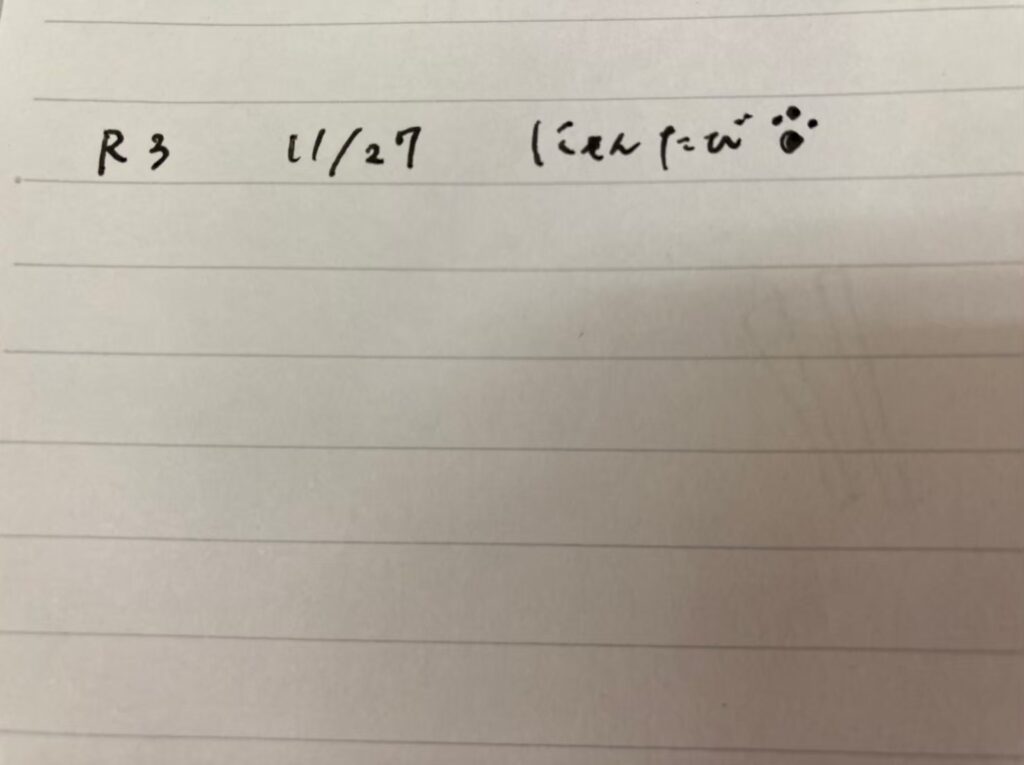 R3 11/27 にゃんたび